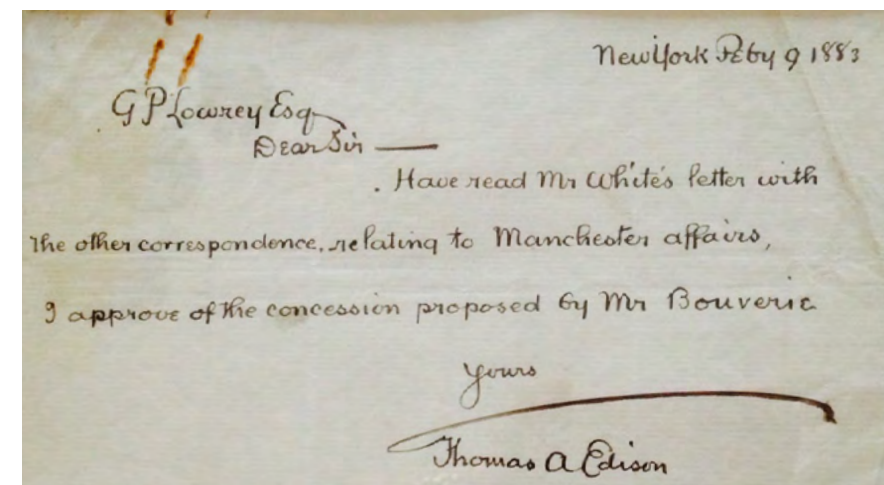 New York Feby 9 1883
G P Lowrey Esq
Dear Sir —
. Have read Mr White's letter with
the other correspondence, relating to Manchester affairs,
I approve of the concession proposed by Mr Bouverie
Yours
Thomas A Edison